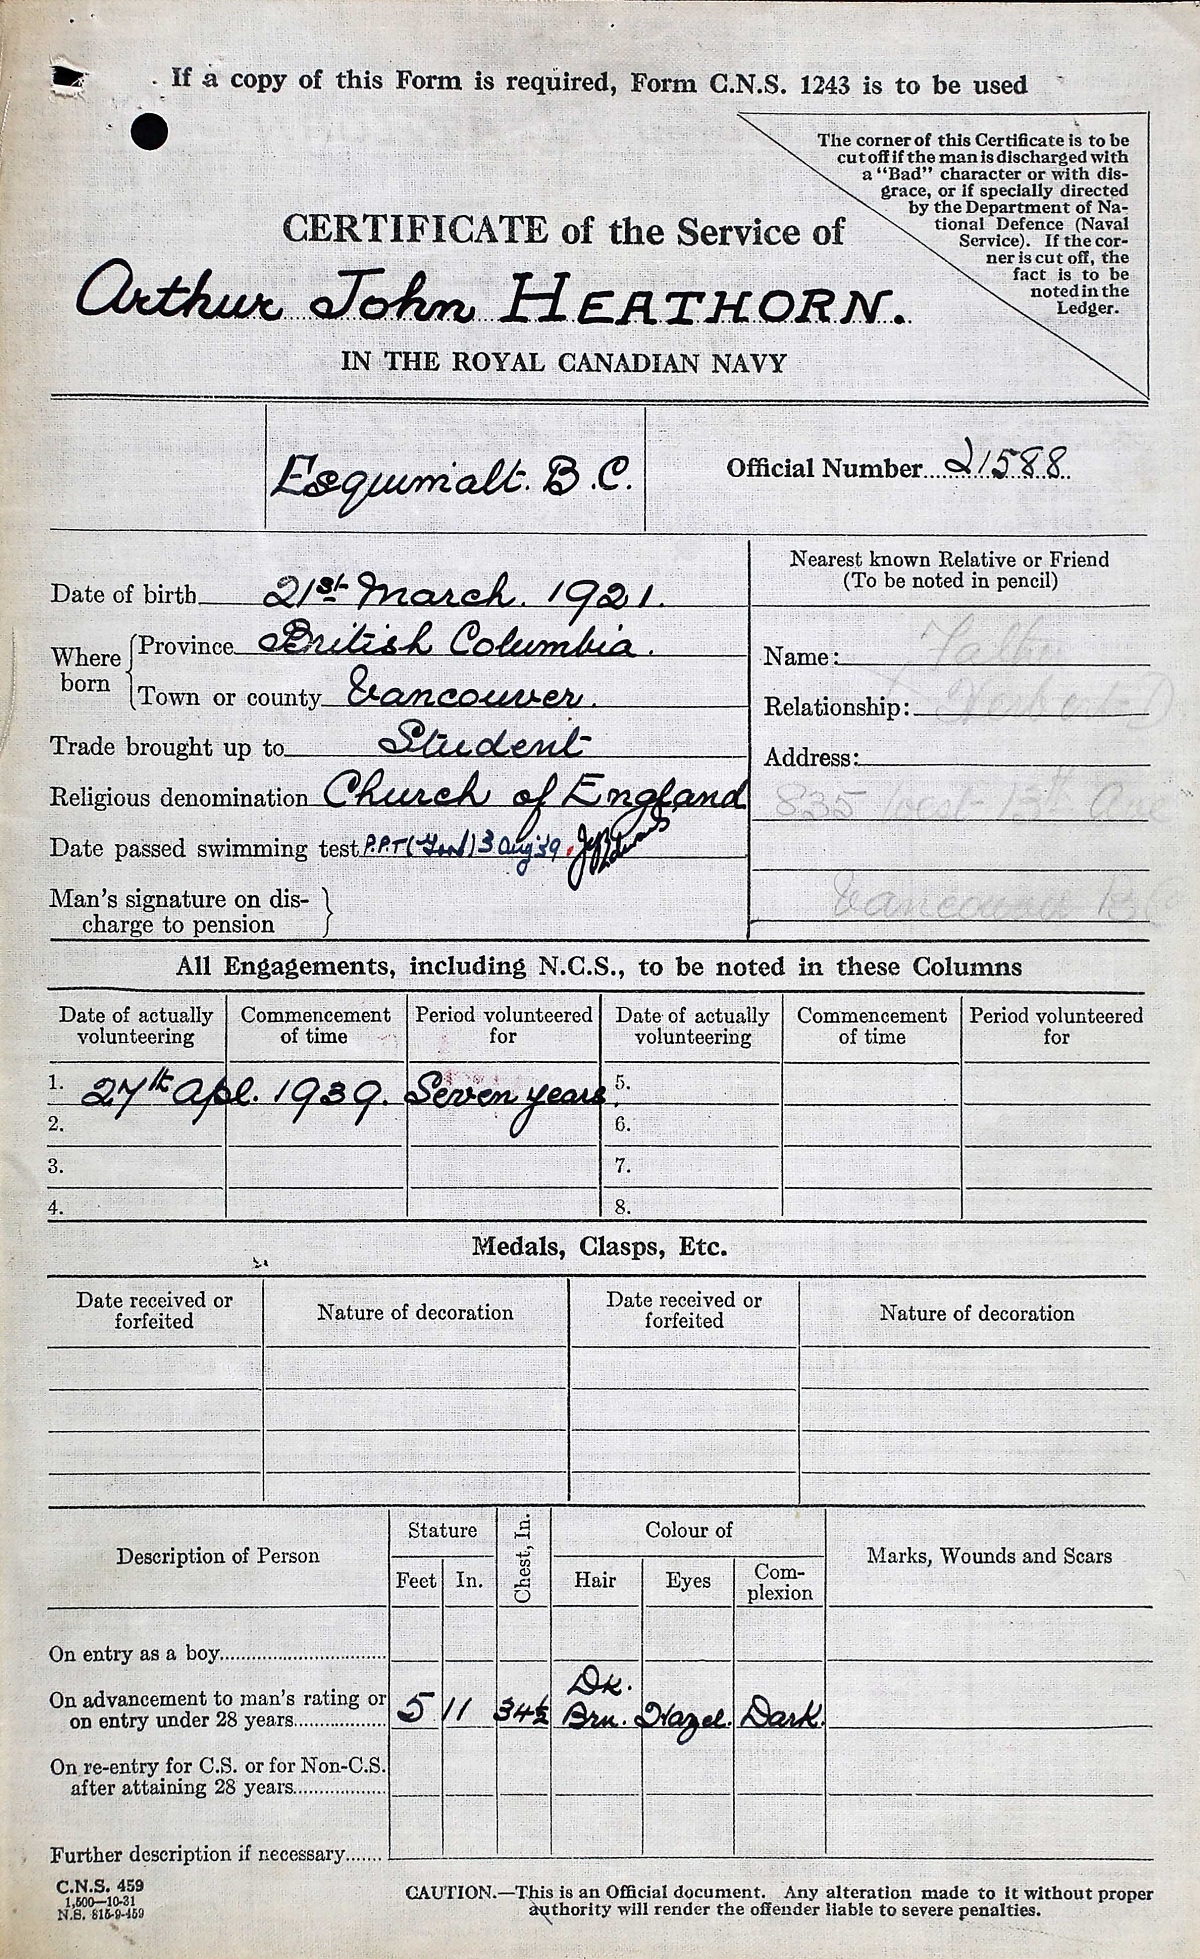 If a copy of this Form is required, Form C.N.S. 1243 is to be used
The corner of this Certificate is to be
cut off if the man is discharged with
a "Bad" character or with dis-
grace, or if specially directed
by the Department of Na-
tional Defence (Naval
Service). If the cor-
ner is cut off, the
fact is to be
noted in the
Ledger.
CERTIFICATE of the Service of
Arthur John HEATHORN.
IN THE ROYAL CANADIAN NAVY
Esquimalt. B.C.
Official Number 21588
Date of birth 21st March. 1921.
Where born
Province British Columbia.
Town or county Vancouver.
Trade brought up to Student
Religious denomination Church of England
Date passed swimming test P.P.T. 3 Aug '39.
Man's signature on dis-
charge to pension
Nearest known Relative or Friend
(To be noted in pencil)
Name: Father
Relationship: Herbert D
Address:
835 West 13th Ave
Vancouver B C
All Engagements, including N.C.S., to be noted in these Columns
Date of actually volunteering Commencement of time Period volunteered for Date of actually volunteering Commencement of time Period volunteered for
1. 27th Apl. 1939. Seven years. 5.
2. 6.
3. 7.
4. 8.
Medals, Clasps, Etc.
Date received or forfeited Nature of decoration Date received or forfeited Nature of decoration
Description of Person Stature Chest, In. Colour of Marks, Wounds and Scars
Feet In. Hair Eyes Com-plexion
On entry as a boy
On advancement to man's rating or
on entry under 28 years 5 11 34½ Dk. Brn. Hazel. Dark.
On re-entry for C.S. or for Non-C.S.
after attaining 28 years
Further description if necessary
C.N.S. 459
1,500—10-31
N.S. 815-9-459
CAUTION.—This is an Official document. Any alteration made to it without proper
authority will render the offender liable to severe penalties.